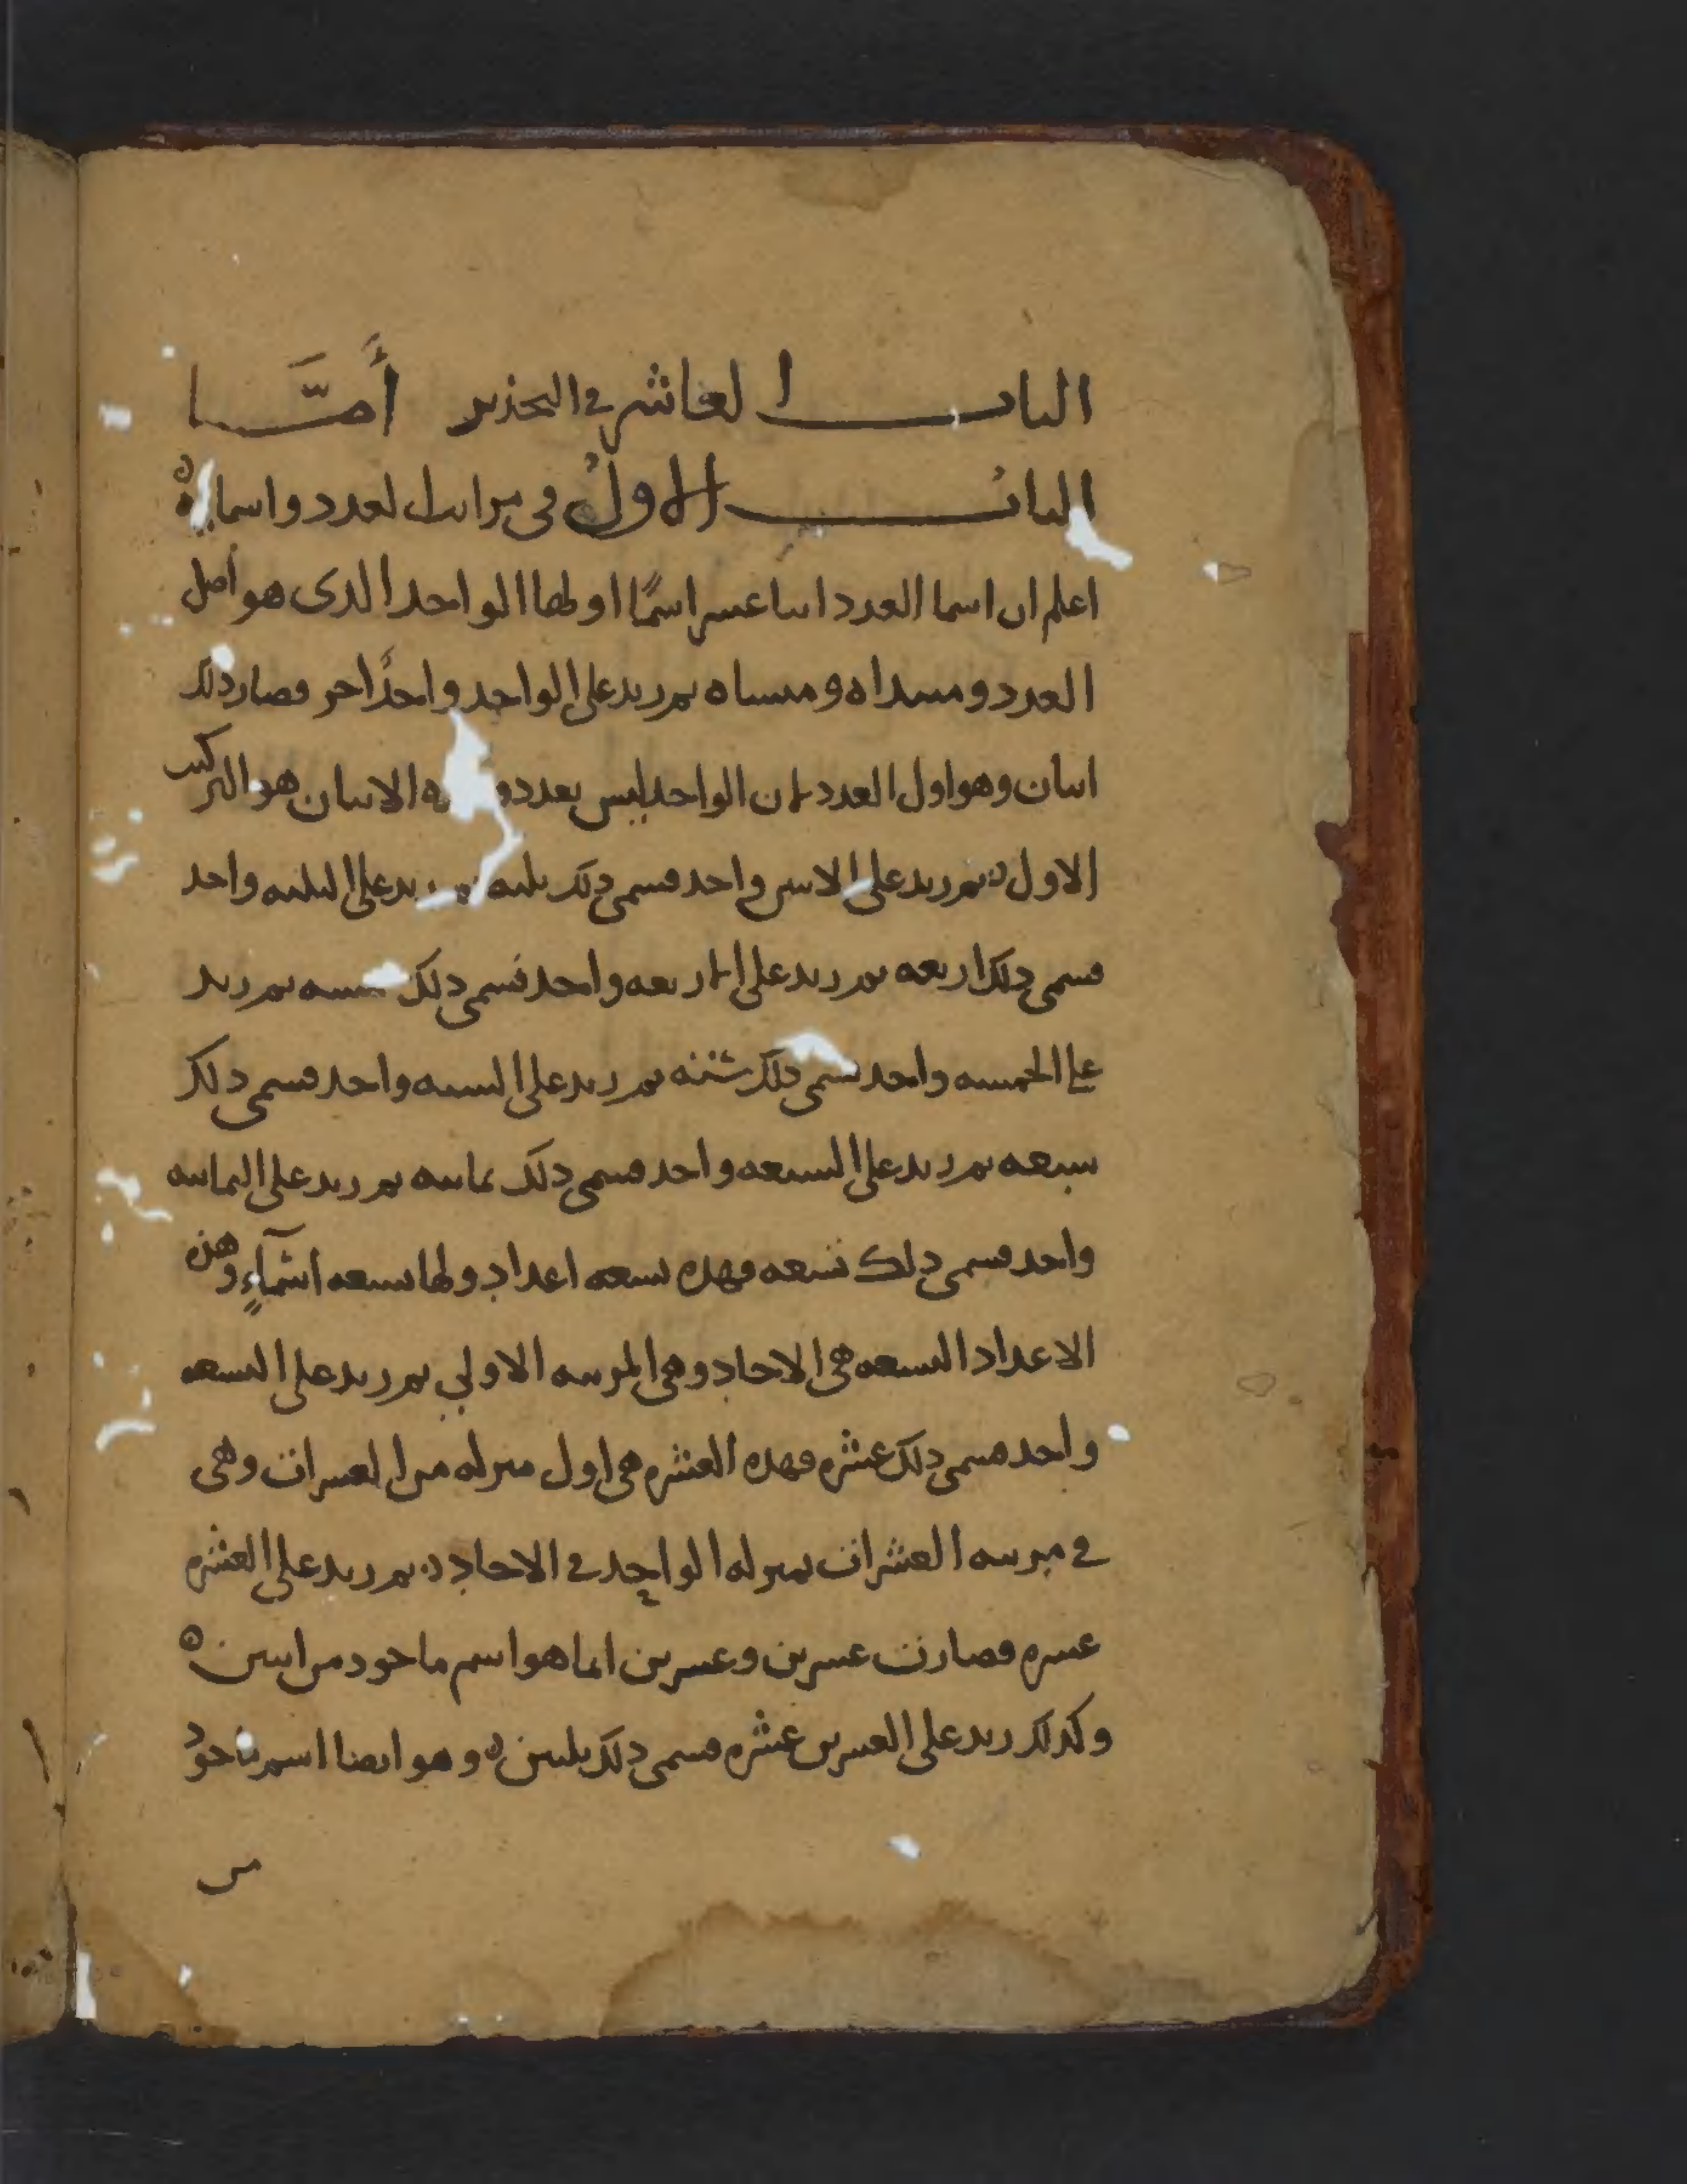 الباب العاشر في التجذير أمَّا
الباب الاول في مراتب العدد واسمايه
اعلم ان اسما العدد اثنا عشر اسمًا اولها الواحد الذى هو اصل
العدد ومبتداه ومنشاه ثم زيد على الواحد واحدًا اخر فصار ذلك
اثنان وهو اول العدد لان الواحد ليس بعدد الاثنان هو التركيب
الاول ثم زيد على الاثنين واحد فسمى ذلك ثلثه ثم زيد على الثلثه واحد
فسمى ذلك اربعه ثم زيد على الاربعه واحد فسمى ذلك خمسه ثم زيد
على الخمسه واحد فسمى ذلك ستته ثم زيد على السته واحد فسمى ذلك
سبعه ثم زيد على السبعه واحد فسمى ذلك ثمانيه ثم زيد على الثمانيه
واحد فسمى ذلك تسعه فهذه تسعه اعداد ولها تسعه اسمآءٍ وهذه
الاعداد التسعه هى الاحاد وهى المرتبه الاولى ثم زيد على التسعه
واحد فسمى ذلك عشره فهذه العشره هى اول منزله من العشرات وهى
في مرتبه العشرات بمنزله الواحد في الاحاد ثم زيد على العشره
عشره فصارت عشرين وعشرين انما هو اسم ماخوذ من اثنين
وكذلك زيد على العشرين عشره فسمى ذلك ثلثين وهو ايضا اسم ماخوذ
من